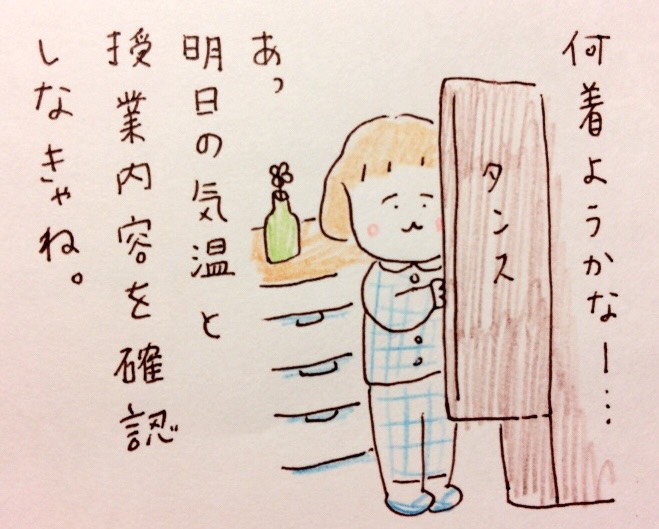 何着ようかなー…
タンス
あっ
明日の気温と
授業内容を確認
しなきゃね。